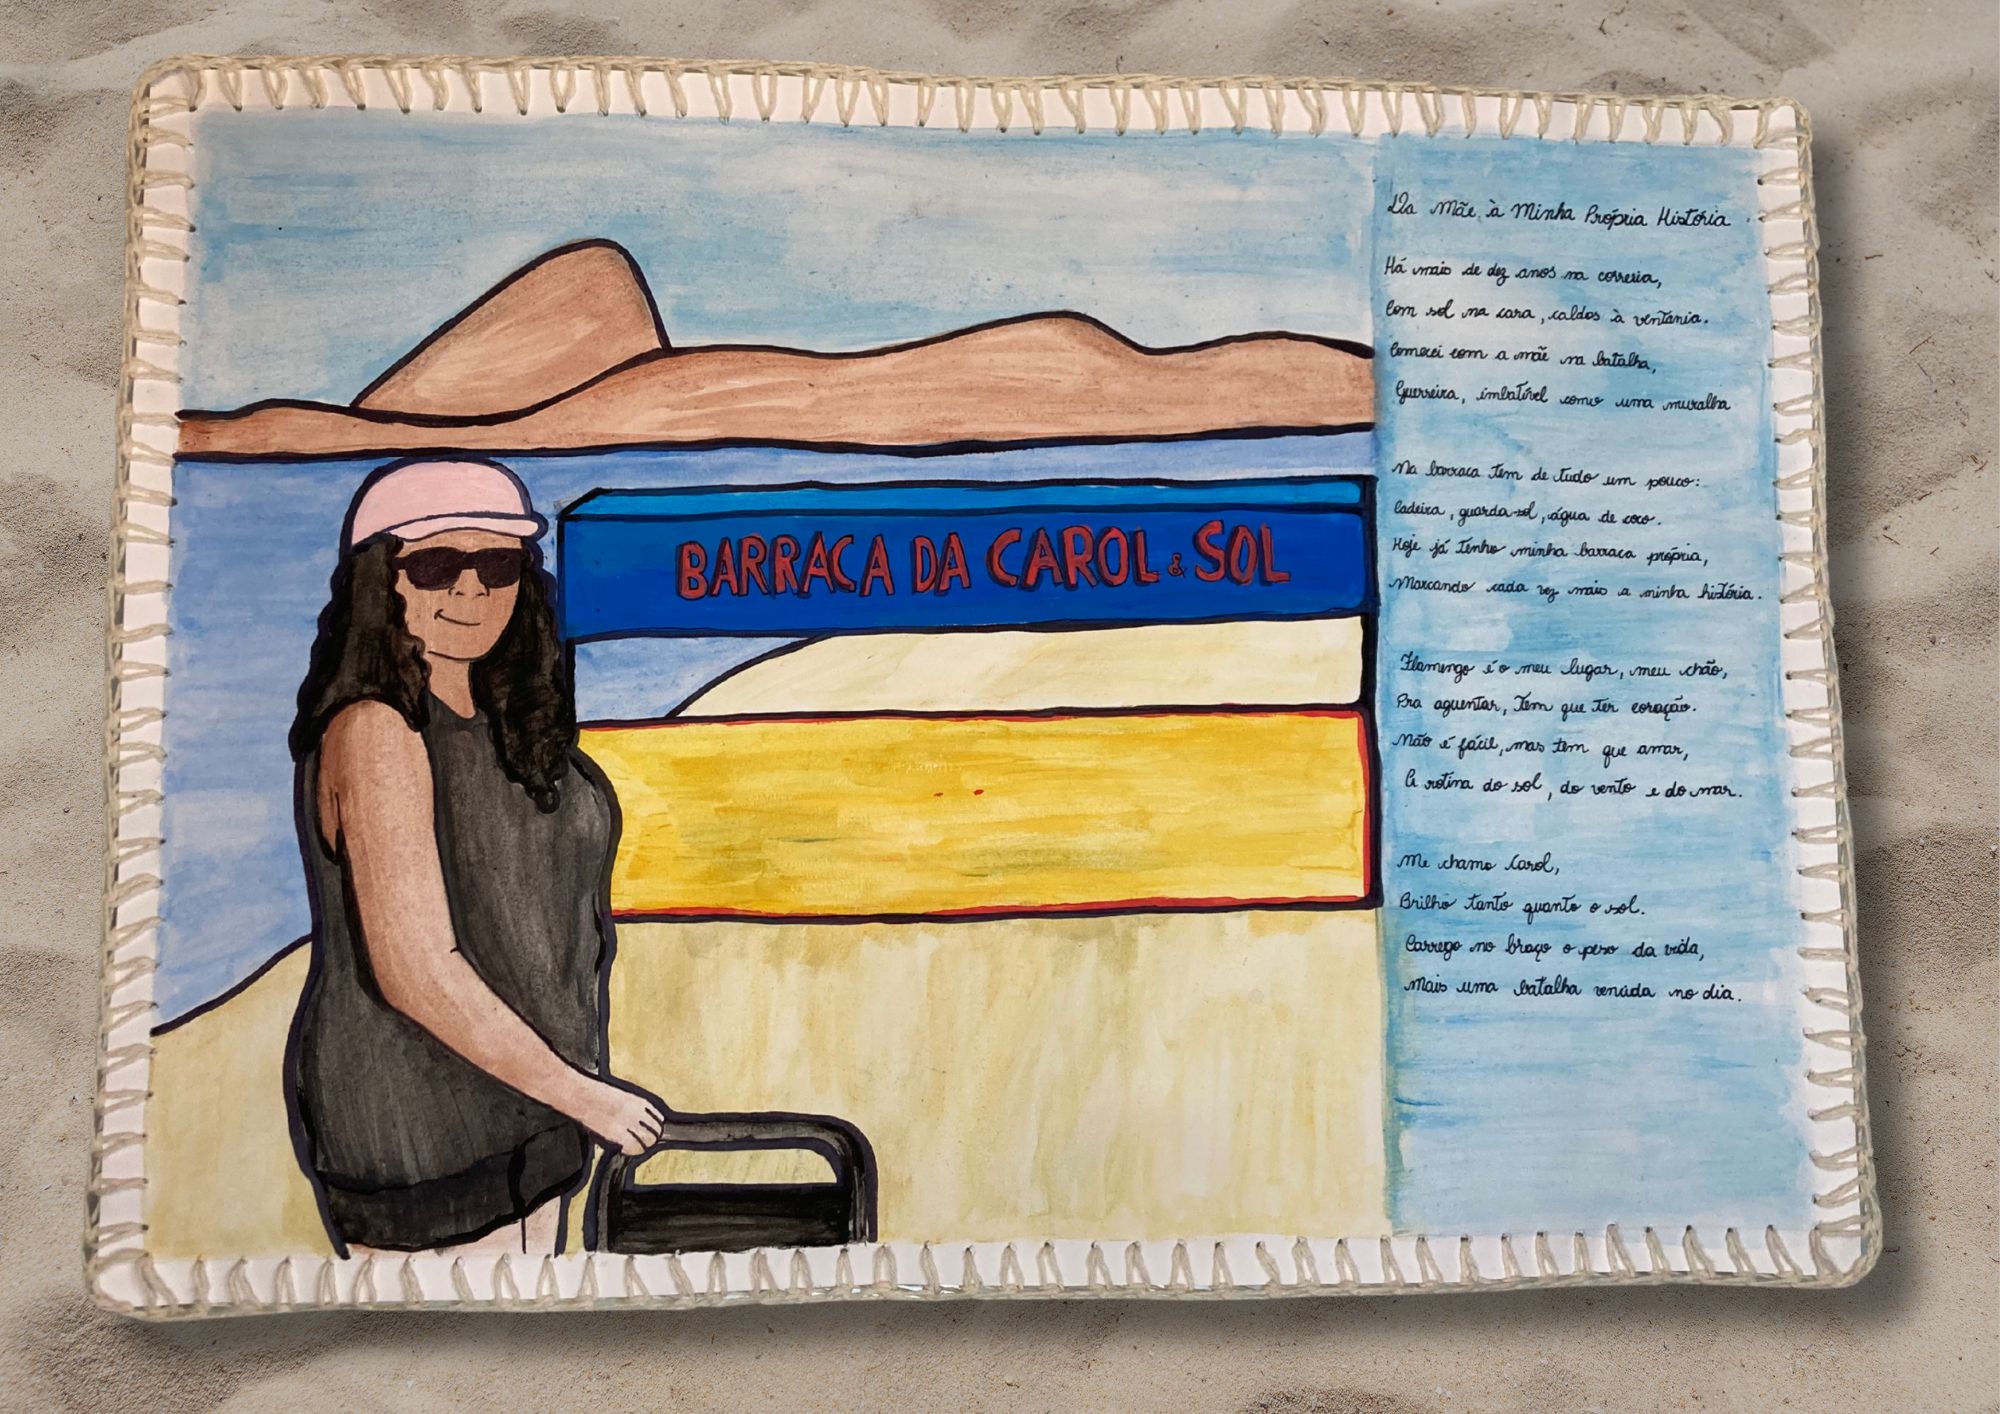 BARRACA DA CAROL & SOL
Da Mãe à Minha Própria História
Há mais de dez anos na correria,
Com sol na cara, caldos à ventania.
Comecei com a mãe na batalha,
Guerreira, imbatível como uma muralha
Na barraca tem de tudo um pouco:
Cadeira, guarda-sol, água de coco.
Hoje já tenho minha barraca própria,
Marcando cada vez mais a minha história.
Flamengo é o meu lugar, meu chão,
Pra aguentar, tem que ter coração.
Não é fácil, mas tem que amar,
A rotina do sol, do vento e do mar.
Me chamo Carol,
Brilho tanto quanto o sol.
Carrego no braço o peso da vida,
Mais uma batalha vencida no dia.